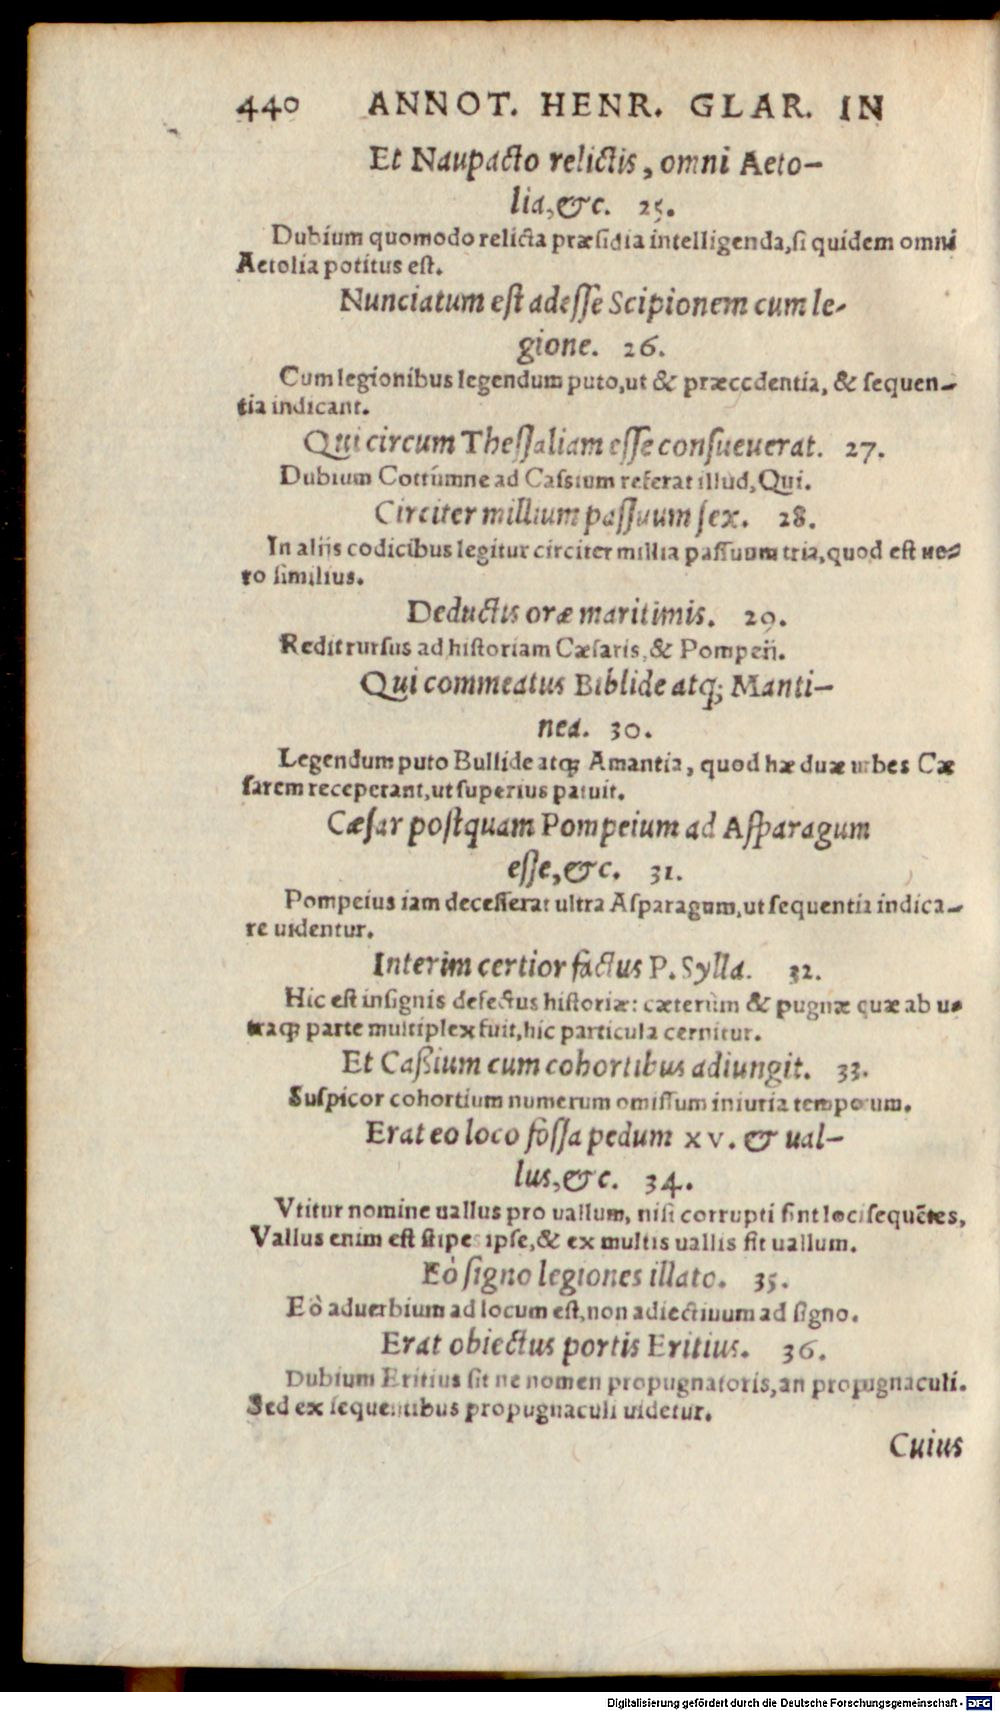 440 ANNOT. HENR. GLAR. IN
Et Naupacto relictis, omni Aeto-
lia, &c. 25.
Dubium quomodo relicta præsidia intelligenda, si quidem omni
Aetolia potitus est.
Nunciatum est adesse Scipionem cum le-
gione. 26.
Cum legionibus legendum puto, ut & præcedentia, & sequen-
tia indicant.
Qui circum Thessaliam esse consueuerat. 27.
Dubium Cottúmne ad Cassium referat illud, Qui.
Circiter millium passuum sex. 28.
In aliis codicibus legitur circiter millia passuum tria, quod est ue-
ro similius.
Deductis oræ maritimis. 29.
Redit rursus ad historiam Cæsaris, & Pompeij.
Qui commeatus Biblide atq; Manti-
nea. 30.
Legendum puto Bullide atq; Amantia, quod hæ duæ urbes Cæ
sarem receperant, ut superius patuit.
Cæsar postquam Pompeium ad Asparagum
esse, &c. 31.
Pompeius iam decesserat ultra Asparagum, ut sequentia indica-
re uidentur.
Interim certior factus P. Sylla. 32.
Hic est insignis defectus historiæ: cæterùm & pugnæ quæ ab u-
traq; parte multiplex fuit, hic particula cernitur.
Et Caßium cum cohortibus adiungit. 33.
Suspicor cohortium numerum omissum iniuria temporum.
Erat eo loco fossa pedum xv. & ual-
lus, &c. 34.
Vtitur nomine uallus pro uallum, nisi corrupti sint loci sequẽtes,
Vallus enim est stipes ipse, & ex multis uallis fit uallum.
Eò signo legiones illato. 35.
Eò aduerbium ad locum est, non adiectiuum ad signo.
Erat obiectus portis Eritius. 36.
Dubium Eritius sit ne nomen propugnatoris, an propugnaculi.
Sed ex sequentibus propugnaculi uidetur.
Cuius
Digitalisierung gefördert durch die Deutsche Forschungsgemeinschaft - DFG